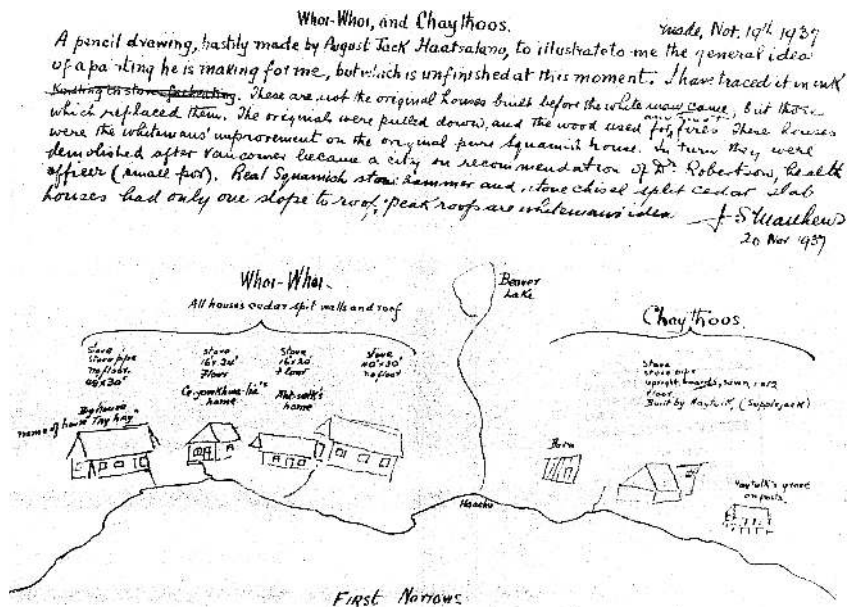 Whoi-Whoi, and Chaythoos.
made, Nov. 19th 1937
A pencil drawing, hastily made by August Jack Haatsalano, to illustrate to me the general idea
of a painting he is making for me, but which is unfinished at this moment. I have traced it in ink
These are not the original houses built before the white man came, but those
which replaced them. The originals were pulled down, and the wood used for fires These houses
were the whitemans' improvement on the original pure Squamish house. In turn they were
demolished after Vancouver became a city on recommendation of Dr. Robertson, health
officer (small pox). Real Squamish stone hammer and stone chisel split cedar slab
houses had only one slope to roof; peak roofs are whitemans idea
J S Matthews
20 Nov 1937
Whoi-Whoi-
All houses cedar split walls and roof
Beaver
Lake
Chaythoos.
Stove
Stove pipe
no floor.
Stove
16 x 24'
Floor
Stove
16 x 20'
floor
Stove
40' x 30'
no floor
home
home
Big house
name of house "Tay hay"
Stove
stove pipe
upright boards, sawn, 1 of 2
floor
Built by Haytulk, (Supplejack)
Barn
Haytulk's grave
on posts.
FIRST NARROWS